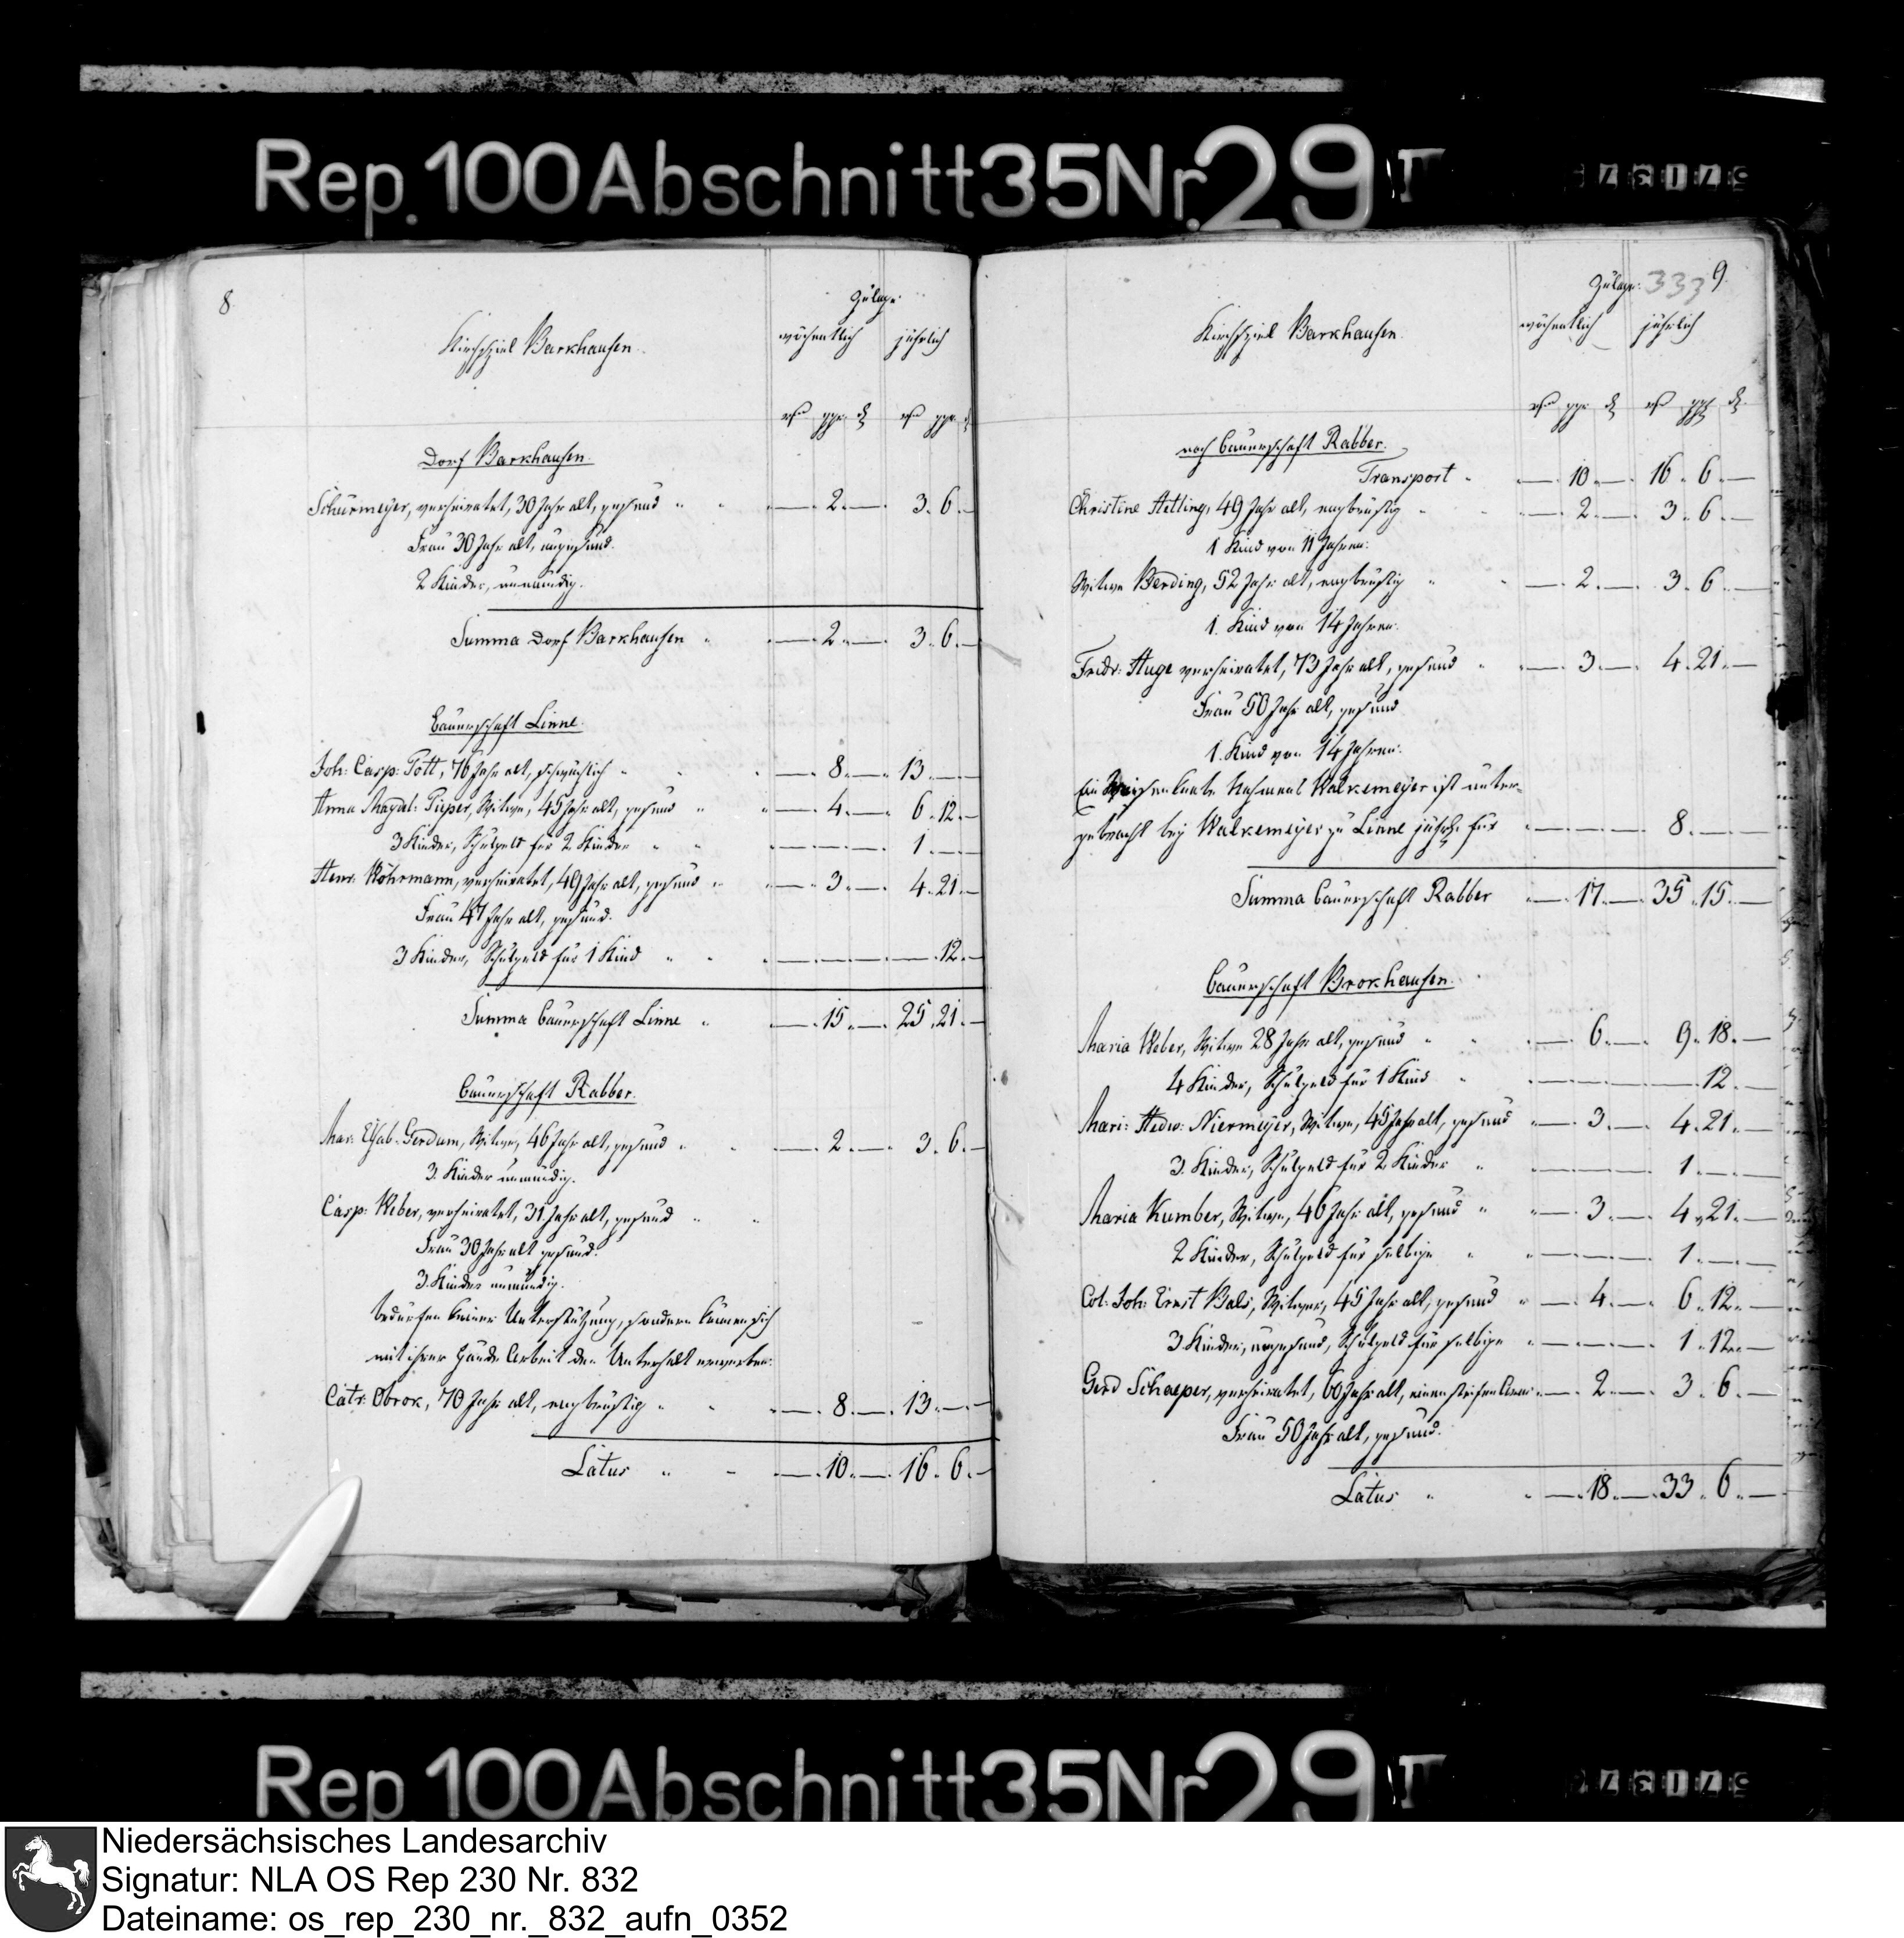 Rep. 100 Abschnitt 35 Nr. 29 I
8
Zulage.
Kirchspiel Barkhausen.
wöchentlich jährlich
rt ggr. d rt ggr. d
Dorf Barkhausen.
Schürmeyer, verheiratet, 30 Jahr alt, gesund " " — . 2. — . 3. 6. —
Frau 30 Jahr alt, ungesund.
2 Kinder, unmündig.
Summa Dorf Barkhausen " — . 2. — . 3. 6. —
Bauerschaft Linne.
Joh: Casp: Tott, 76 Jahr alt, schwächlich " " " — . 8. — . 13. — . —
Anna Magdal: Pieper, Witwe, 45 Jahr alt, gesund " " — . 4. — . 6. 12. —
3 Kinder, Schulgeld für 2 Kinder " " — . — . — . 1. — . —
Henr: Köhrmann, verheiratet, 49 Jahr alt, gesund " — . 3. — . 4. 21. —
Frau 47 Jahr alt, gesund.
3 Kinder, Schulgeld für 1 Kind " " " — . — . — . — . 12. —
Summa Bauerschaft Linne " — . 15. — . 25. 21. —
Bauerschaft Rabber.
Mar: Elsab: Gerdum, Witwe, 46 Jahr alt, gesund " " — . 2. — . 3. 6. —
3. Kinder unmündig.
Casp: Weber, verheiratet, 31. Jahr alt, gesund " "
Frau 30 Jahr alt gesund.
3. Kinder unmündig.
bedürfen keiner Unterstützung, sondern können sich
mit ihrer Hände Arbeit den Unterhalt erwerben.
Catr: Obrok, 70 Jahr alt, engbrüstig " " — . 8. — . 13. — . —
Latus " " — . 10. — . 16. 6. —
Zulage. 333 9.
Kirchspiel Barkhausen.
wöchentlich jährlich
rt ggr d rt ggr d
noch Bauerschaft Rabber.
Transport " — . 10. — . 16. 6. —
Christine Helling, 49 Jahr alt, engbrüstig " " — . 2. — . 3. 6. —
1 Kind von 11 Jahren.
Witwe Berding, 52 Jahr alt, engbrüstig " " — . 2. — . 3. 6. —
1. Kind von 14 Jahren.
Fridr: Huge verheiratet, 73 Jahr alt, gesund " — . 3. — . 4. 21. —
Frau 50 Jahr alt, gesund
1. Kind von 14 Jahren.
Ein Waisenknabe Nahmens Walkemeyer ist unter-
gebracht bey Walkemeyer zu Linne jährl. für — . — . — . 8. — . —
Summa Bauerschaft Rabber — . 17. — . 35. 15. —
Bauerschaft Brokhausen.
Maria Weber, Witwe 28 Jahr alt, gesund " " — . 6. — . 9. 18. —
4 Kinder, Schulgeld für 1 Kind " — . — . — . — . 12. —
Mari: Hedw: Niermeyer, Witwe, 45 Jahr alt, gesund — . 3. — . 4. 21. —
3. Kinder, Schulgeld für 2 Kinder " — . — . — . 1. — . —
Maria Kumber, Witwe, 46 Jahr alt, gesund " — . 3. — . 4. 21. —
2 Kinder, Schulgeld für selbige " — . — . — . 1. — . —
Col: Joh: Ernst Bals, Witwer, 45 Jahr alt, gesund " — . 4. — . 6. 12. —
3 Kinder, ungesund, Schulgeld für selbige — . — . — . 1. 12. —
Gerd Schaeper, verheiratet, 60 Jahr alt, einen steifen Arm — . 2. — . 3. 6. —
Frau 50 Jahr alt, gesund.
Latus " — . 18. — . 33. 6. —
Rep 100 Abschnitt 35 Nr 29 I
Niedersächsisches Landesarchiv
Signatur: NLA OS Rep 230 Nr. 832
Dateiname: os_rep_230_nr._832_aufn_0352